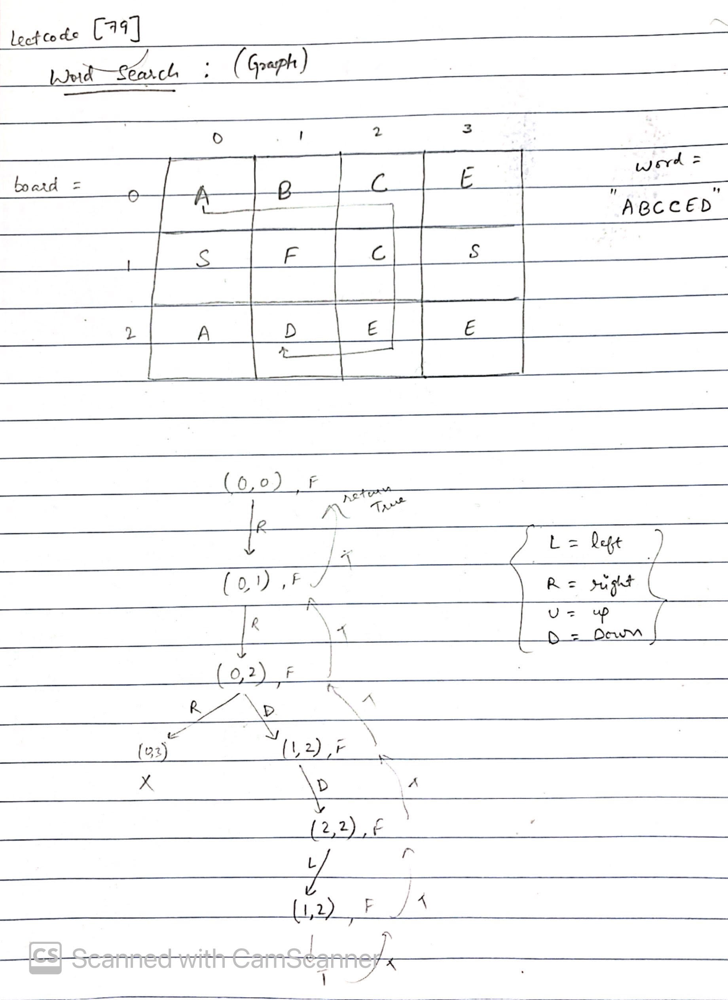 Leetcode [79]
Word Search : (Graph)
0 1 2 3
board = 0 A B C E word =
"ABCCED"
1 S F C S
2 A D E E
(0,0), F
return
True
R
T
(0,1), F
R
T
(0,2), F
R D
(0,3) (1,2), F
X
D
(2,2), F
L
T
(1,2), F
T
L = left
R = right
U = up
D = Down
CS Scanned with CamScanner